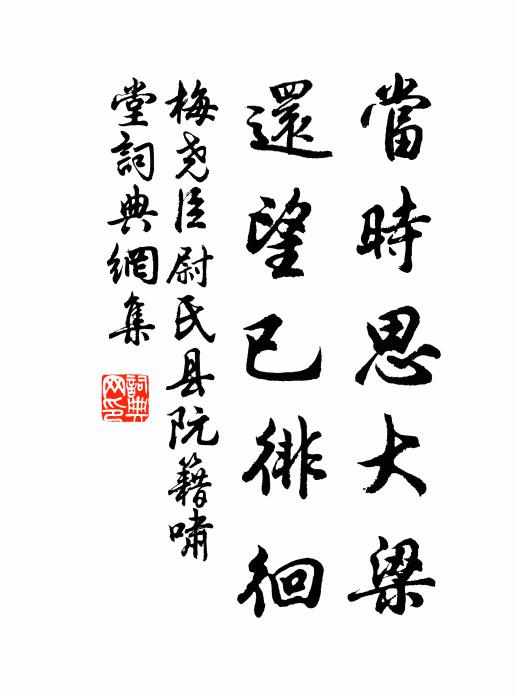 當時思大梁
還望已徘徊
梅尧臣尉氏县阮籍嘯
堂詞典網集
詞典
网印